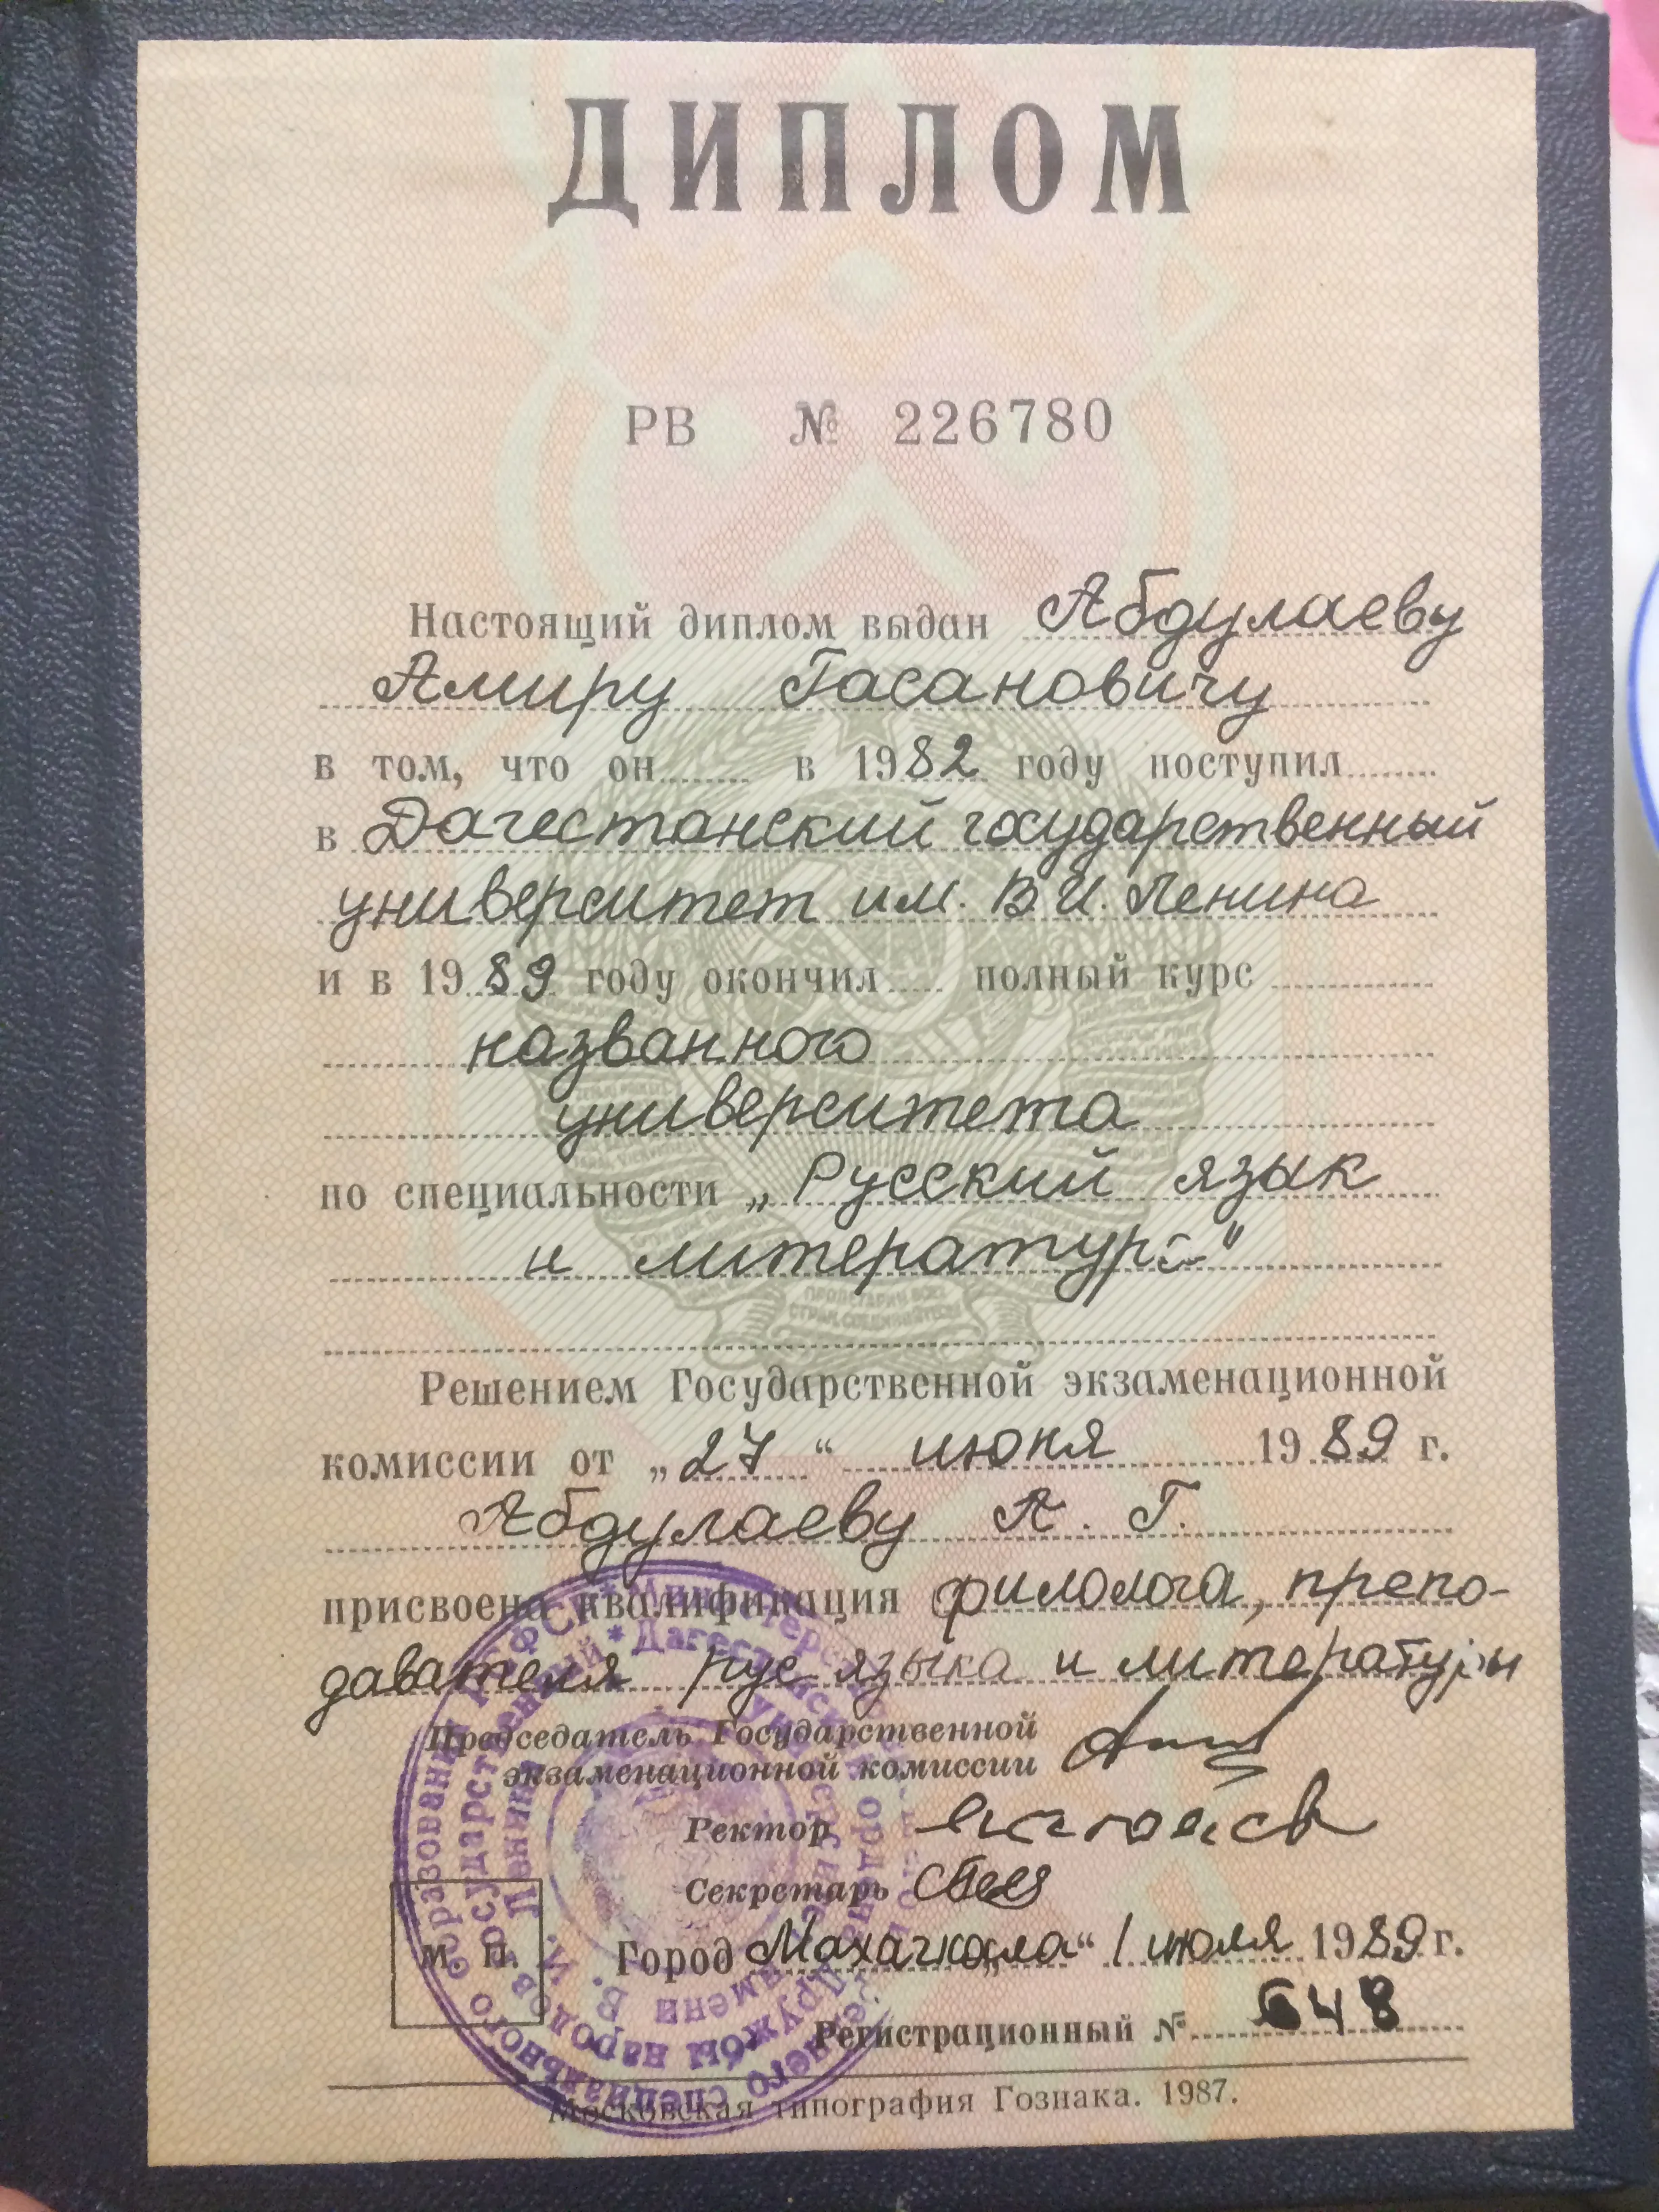 ДИПЛОМ
РВ № 226780
Настоящий диплом выдан Абдулаеву
Амиру Гасановичу
в том, что он в 1982 году поступил
в Дагестанский государственный
университет им. В И. Ленина
и в 1989 году окончил полный курс
названного
университета
по специальности „Русский язык
и литература"
Решением Государственной экзаменационной
комиссии от „27“ июня 1989 г.
Абдулаеву А. Г.
присвоена квалификация филолога, препо-
давателя рус языка и литературы
Председатель Государственной
экзаменационной комиссии
Ректор
Секретарь
Город Махачкала „1“ июля 1989 г.
М. П.
Регистрационный № 648
Московская типография Гознака. 1987.